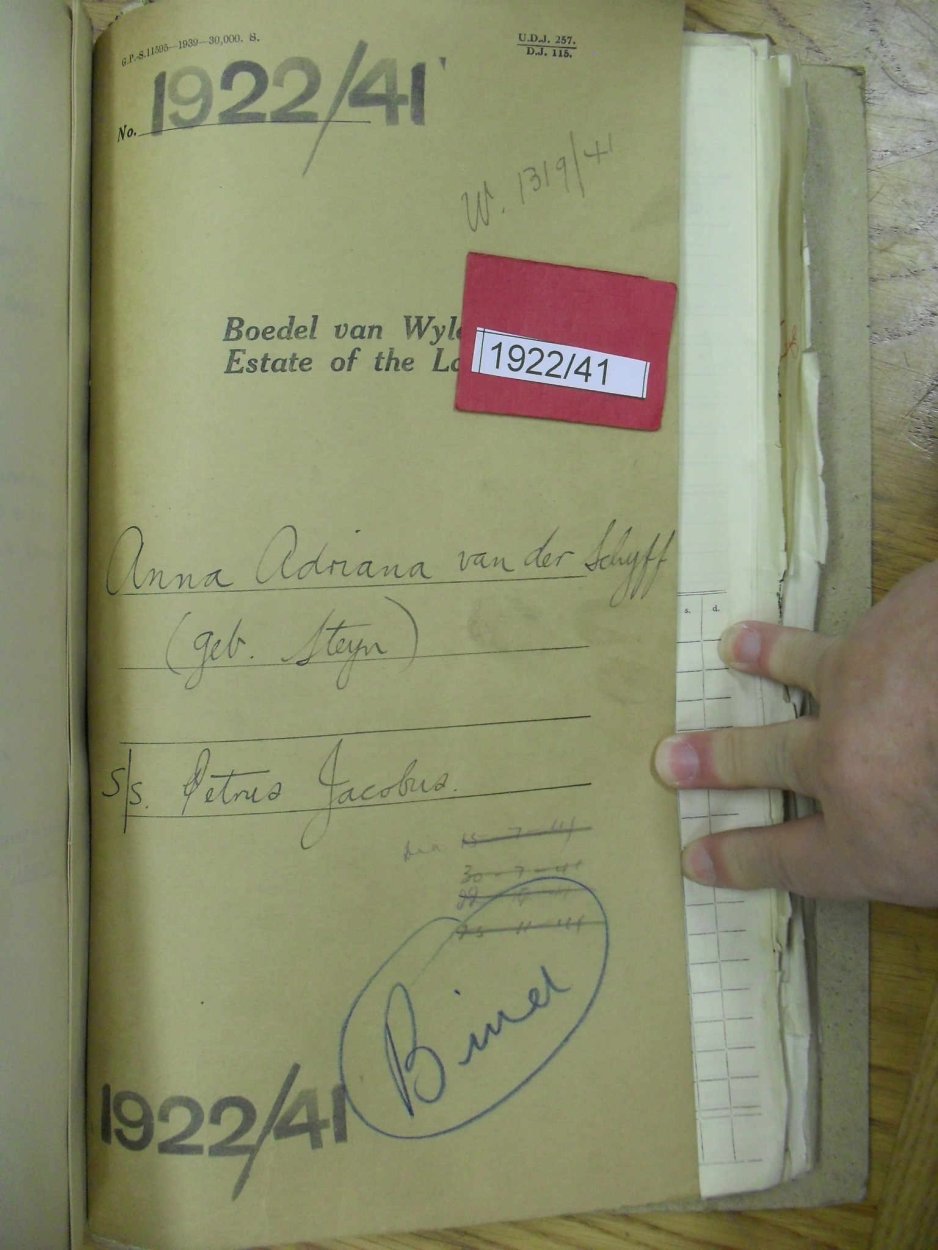 G.P.-S.11595—1939—30,000. S.
U.D.J. 257.
D.J. 115.
No. 1922/41
W. 1319/41
Boedel van Wyle
Estate of the La
1922/41
Anna Adriana van der Schyff
(geb. Steyn)
s/s. Petrus Jacobus.
15-7-41
30-7-41
25-11-41
s. d.
1922/41